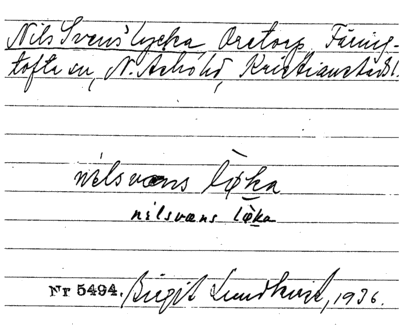 Nils Svens' lycka, Oretorp, Färing-
tofta sn, N. Åsbo hd, Kristianstads l.
nilsvæns lø̄ka
nilsvæns lø̄ka
Nr 5494. Birgit Lundkvist, 1936.